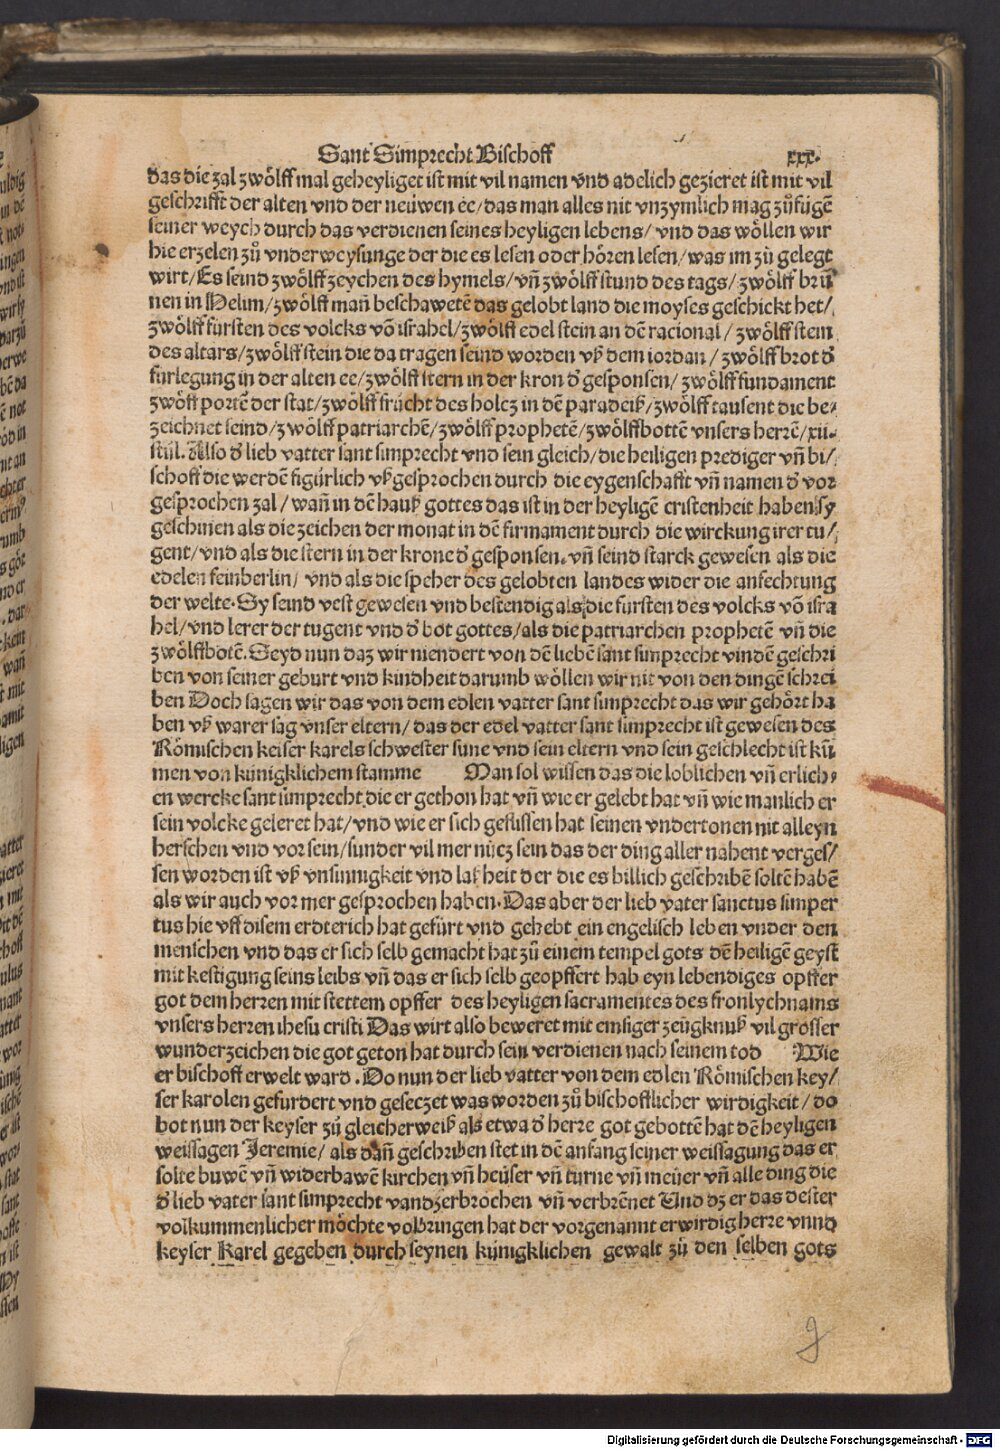 Sant Simprecht Bischoff xxx.
das die zal zwölff mal geheyliget ist mit vil namen vnd adelich gezieret ist mit vil
geschrifft der alten vnd der neüwen ee/das man alles nit vnzymlich mag zůfügē
seiner weych durch das verdienen seines heyligen lebens/ vnd das wöllen wir
hie erzelen zů vnderweysunge der die es lesen oder hören lesen/was im zů gelegt
wirt/Es seind zwölff zeychen des hymels/vñ zwölff stund des tags/zwölff brū
nen in Helim/zwölff mañ beschawetē das gelobt land die moyses geschickt het/
zwölff fürsten des volcks vō israhel/zwölff edel stein an dē racional/ zwölff stein
des altars/zwölff stein die da tragen seind worden vß dem iordan/ zwölff brot d̕
fürlegung in der alten ee/zwölff stern in der kron d̕ gesponsen/ zwölff fundament
zwöff portē der stat/zwölff frücht des holcz in dē paradeiß/zwölff tausent die be/
zeichnet seind/zwölff patriarchē/zwölff prophetē/zwölffbottē vnsers herrē/xii.
stül. Also d̕ lieb vatter sant simprecht vnd sein gleich/die heiligen prediger vñ bi/
schoff die werdē figürlich vßgesprochen durch die eygenschafft vñ namen d̕ vor
gesprochen zal/ wañ in dē hauß gottes das ist in der heyligē cristenheit haben sy
geschinen als die zeichen der monat in dē firmament durch die wirckung irer tu/
gent/vnd als die stern in der krone d̕ gesponsen. vñ seind starck gewesen als die
edelen feinberlin/ vnd als die speher des gelobten landes wider die anfechtung
der welte. Sy seind vest gewesen vnd bestendig als die fürsten des volcks vō isra
hel/vnd lerer der tugent vnd d̕ bot gottes/als die patriarchen prophetē vñ die
zwölffbotē. Seyd nun daz wir niendert von dē liebē sant simprecht vindē geschri
ben von seiner geburt vnd kindheit darumb wöllen wir nit von den dingē schrei
ben Doch sagen wir das von dem edlen vatter sant simprecht das wir gehört ha
ben vß warer sag vnser eltern/ das der edel vatter sant simprecht ist gewesen des
Römischen keiser karels schwester sune vnd sein eltern vnd sein geschlecht ist kū
men von künigklichem stamme Man sol wissen das die loblichen vñ erlich/
en wercke sant simprecht die er gethon hat vñ wie er gelebt hat vñ wie manlich er
sein volcke geleret hat/vnd wie er sich geflissen hat seinen vndertonen nit alleyn
herschen vnd vor sein/sunder vil mer nücz sein das der ding aller nahent verges/
sen worden ist vß vnsinnigkeit vnd laßheit der die es billich geschribē soltē habē
als wir auch vor mer gesprochen haben. Das aber der lieb vater sanctus simper
tus hie vff disem erdterich hat gefürt vnd gehebt ein engelisch leben vnder den
menschen vnd das er sich selb gemacht hat zů einem tempel gots dē heiligē geyst
mit kestigung seins leibs vñ das er sich selb geopffert hab eyn lebendiges opffer
got dem herren mit stettem opffer des heyligen sacramentes des fronlychnams
vnsers herren ihesu cristi Das wirt also beweret mit emsiger zeügknuß vil grosser
wunderzeichen die got geton hat durch sein verdienen nach seinem tod Wie
er bischoff erwelt ward. Do nun der lieb vatter von dem edlen Römischen key/
ser karolen gefurdert vnd geseczet was worden zů bischofflicher wirdigkeit/ do
bot nun der keyser zů gleicherweiß als etwa d̕ herre got gebottē hat dē heyligen
weissagen Jeremie/ als dañ geschriben stet in dē anfang seiner weissagung das er
solte buwē vñ widerbawē kirchen vñ heüser vñ türne vñ meüer vñ alle ding die
d̕ lieb vater sant simprecht vand zerbrochen vñ verbrēnet Vnd dz er das dester
volkummenlicher möchte volbringen hat der vorgenannt erwirdig herre vnnd
keyser Karel gegeben durch seynen künigklichen gewalt zů den selben gots
g
Digitalisierung gefördert durch die Deutsche Forschungsgemeinschaft - DFG